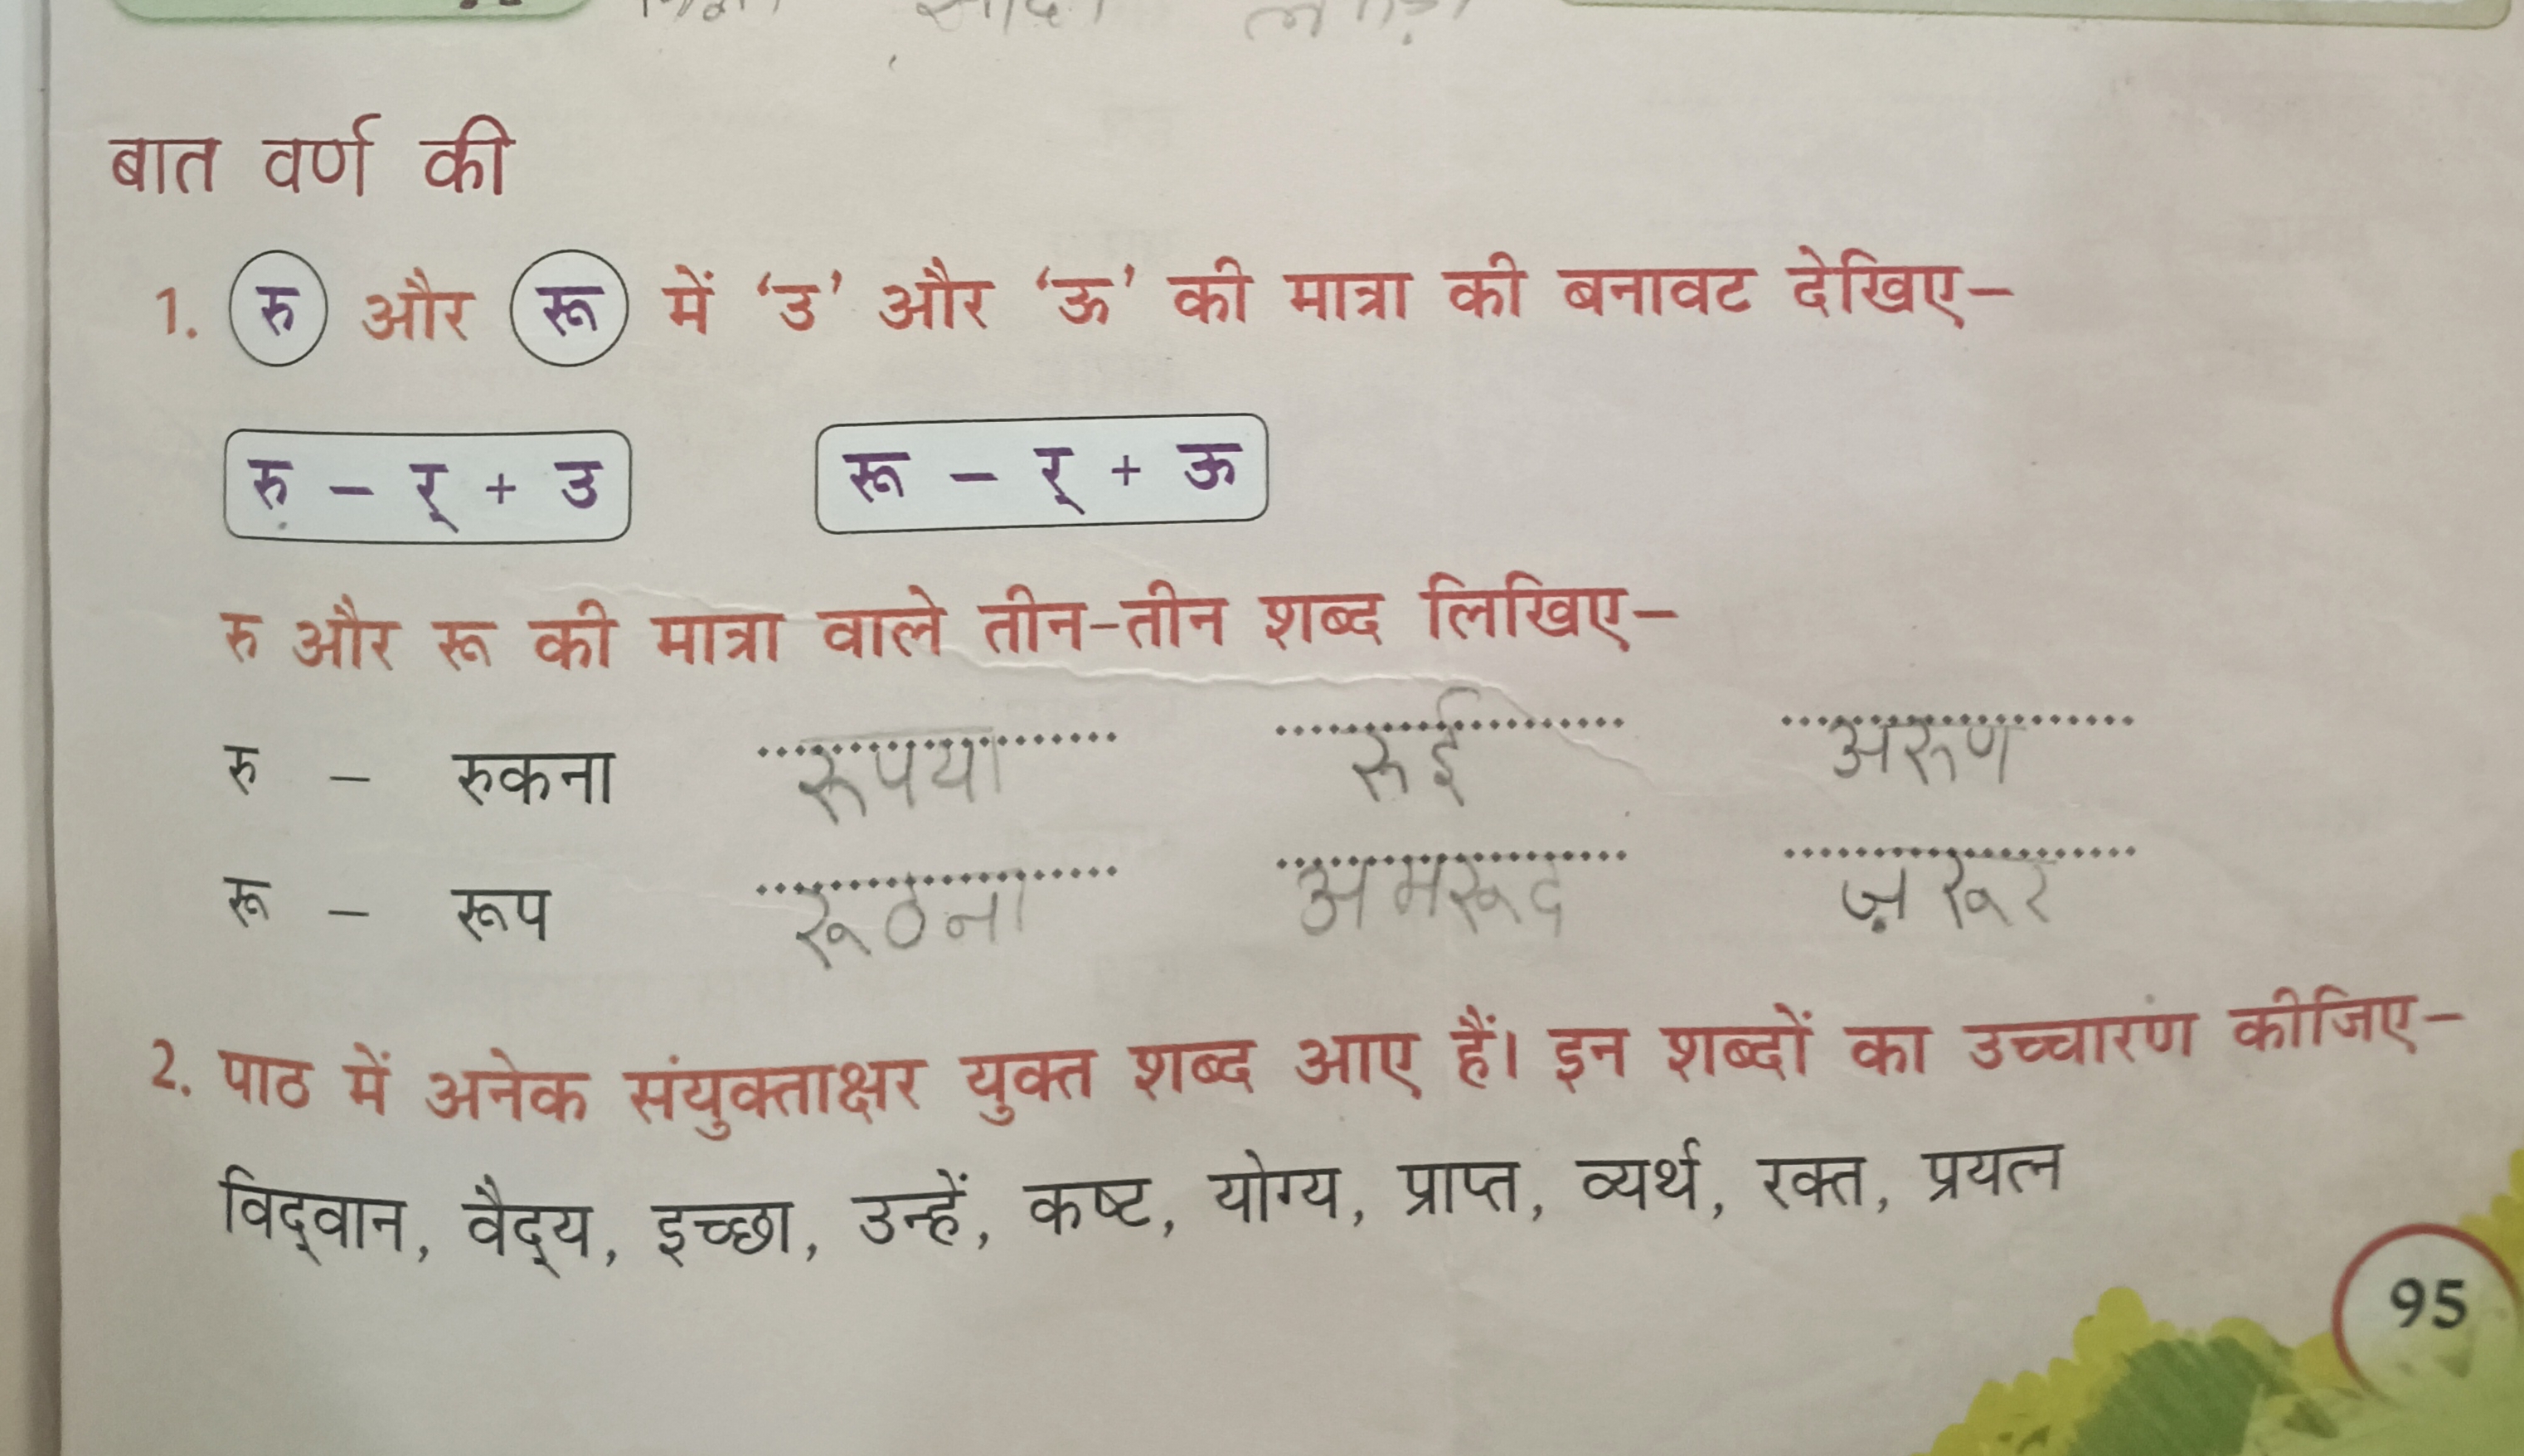 बात वर्ण की
1. रु और रू में ‘उ’ और ‘ऊ’ की मात्रा की बनावट देखिए–
रु – र् + उ रू – र् + ऊ
रु और रू की मात्रा वाले तीन-तीन शब्द लिखिए–
रु – रुकना रुपया रुई अरुण
रू – रूप रूठना अमरूद ज़रूर
2. पाठ में अनेक संयुक्ताक्षर युक्त शब्द आए हैं। इन शब्दों का उच्चारण कीजिए–
विद्‌वान, वैद्‌य, इच्छा, उन्हें, कष्ट, योग्य, प्राप्त, व्यर्थ, रक्त, प्रयत्न
95